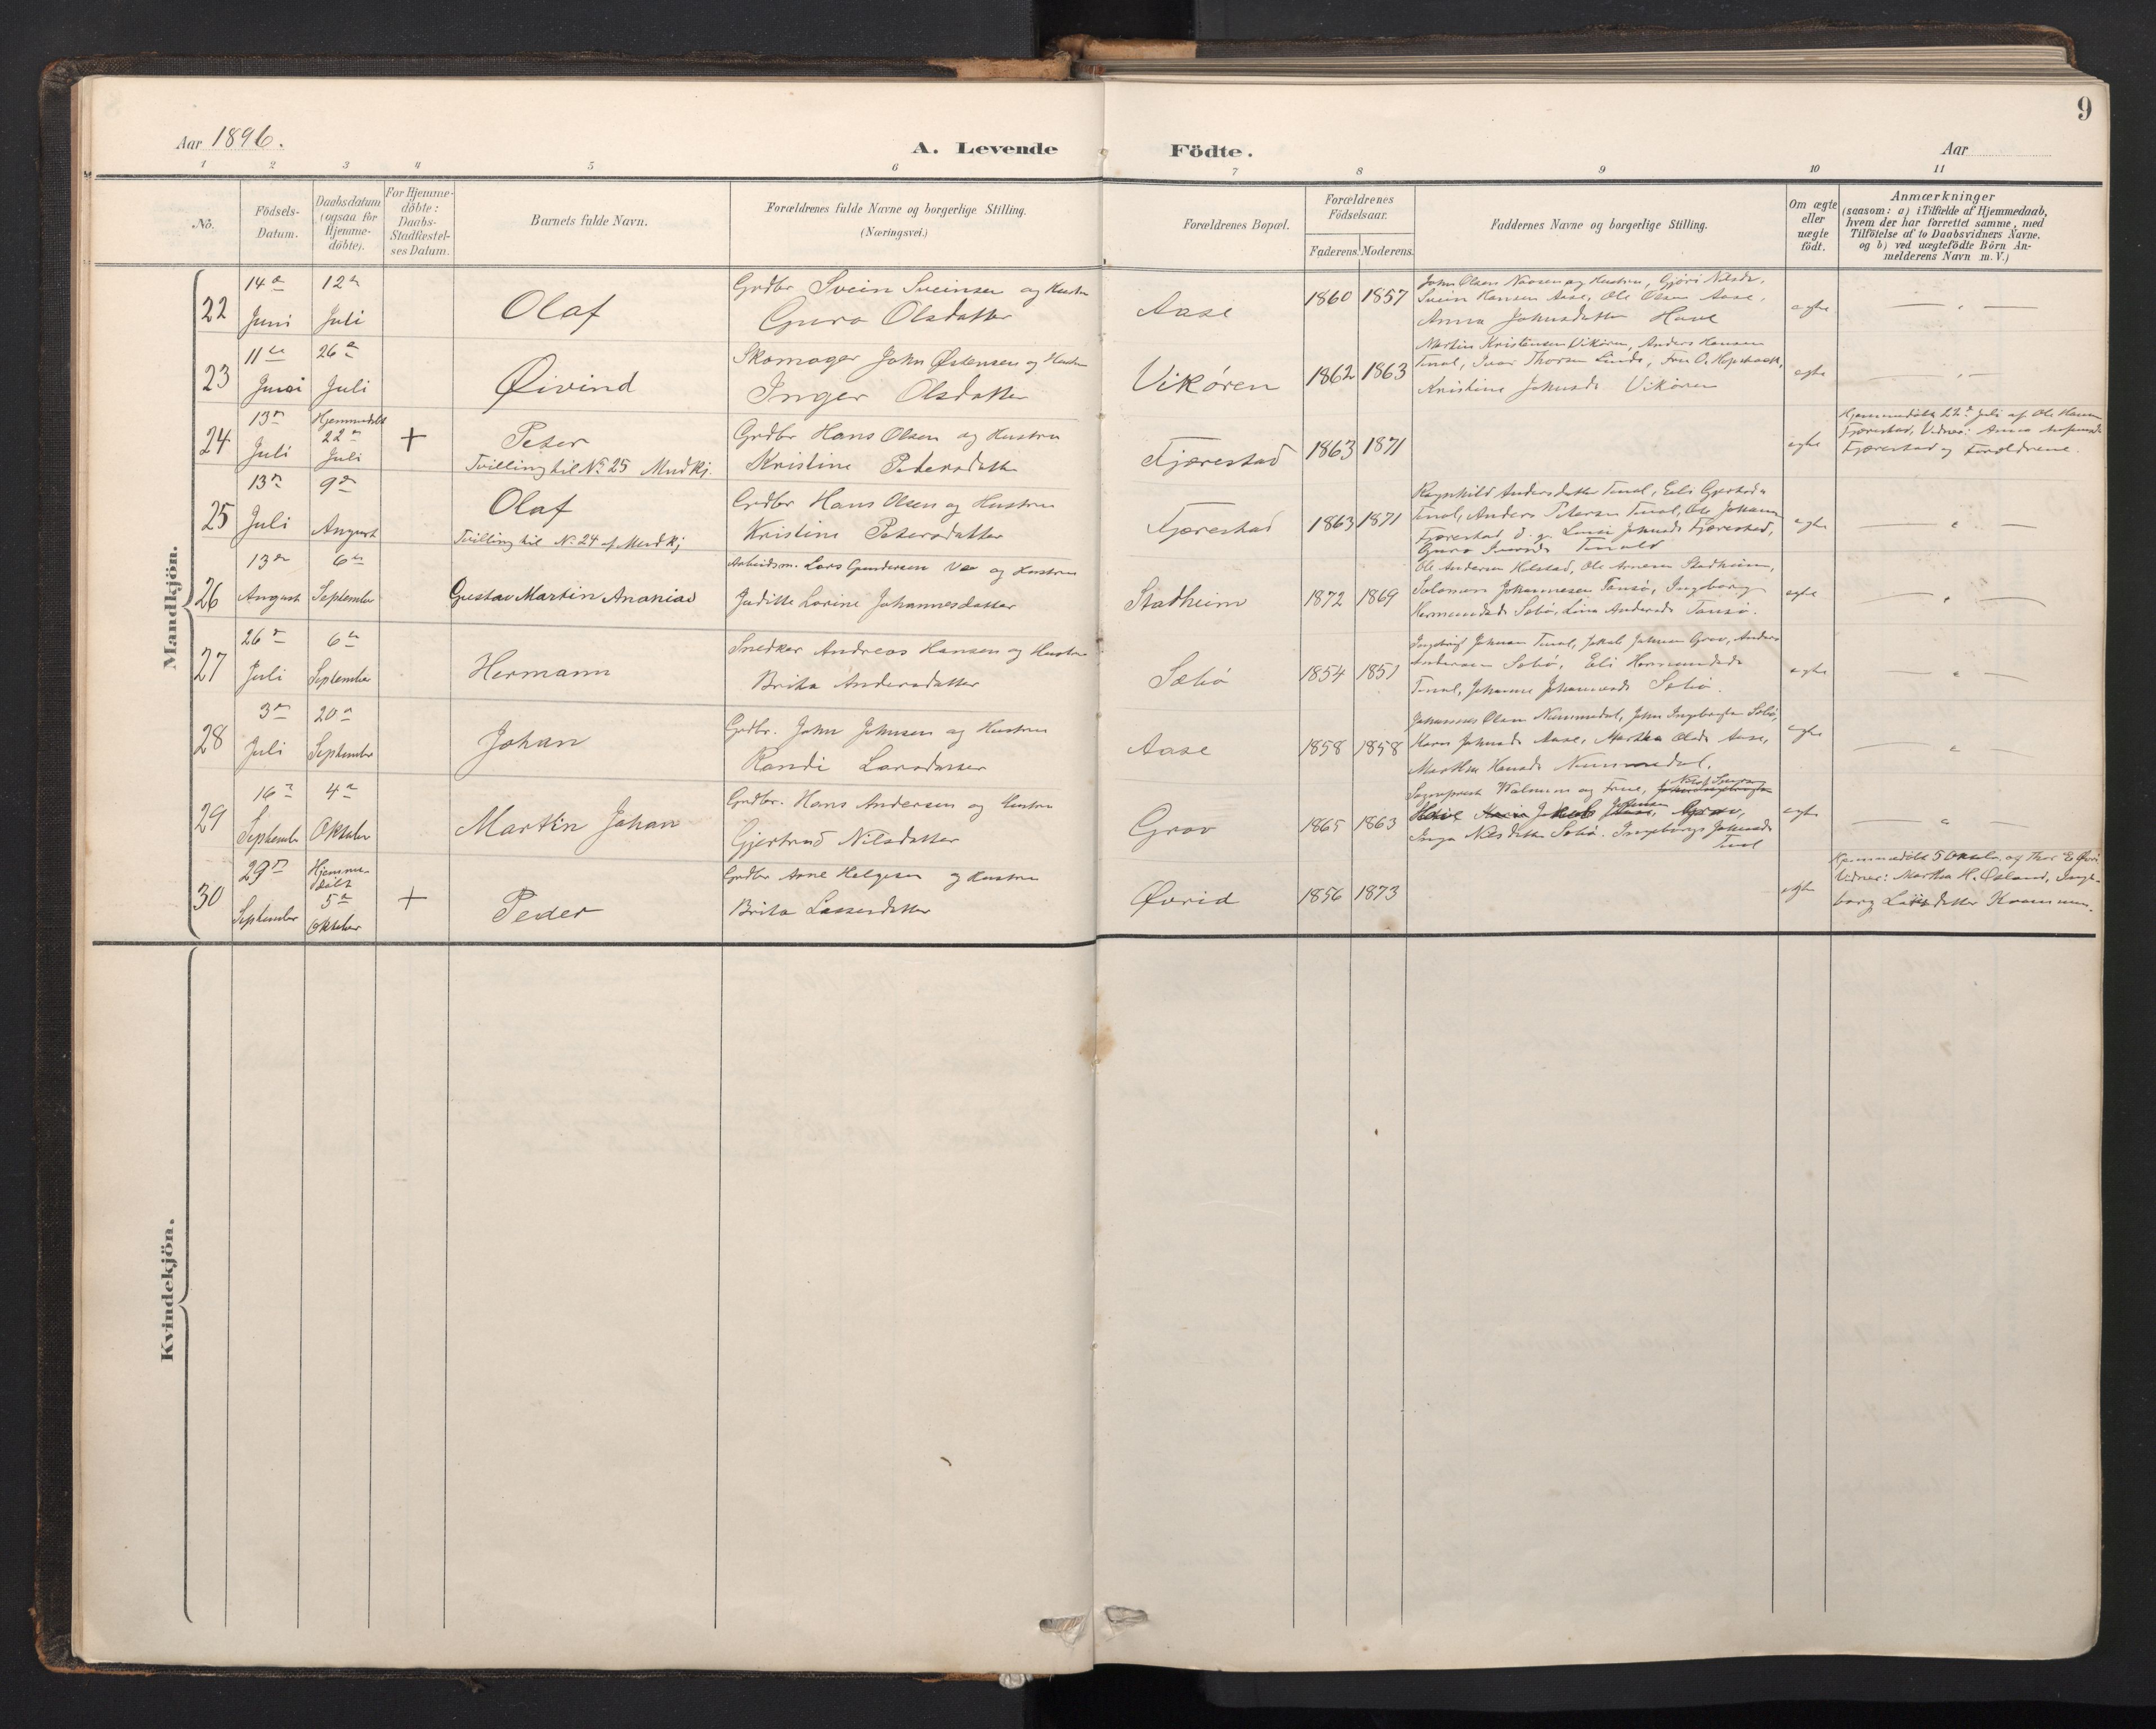 9
Aar 1896.
A. Levende Födte.
Aar
1 2 3 4 5 6 7 8 9 10 11
No.
Födsels-
Datum.
Daabsdatum
(ogsaa for
Hjemme-
döbte).
For Hjemme-
döbte:
Daabs-
Stadfæstel-
ses Datum.
Barnets fulde Navn.
Forældrenes fulde Navne og borgerlige Stilling.
(Næringsvei.)
Forældrenes Bopæl.
Forældrenes
Födselsaar.
Faderens. Moderens.
Faddernes Navne og borgerlige Stilling.
Om ægte
eller
uægte
födt.
Anmærkninger
(saasom: a) i Tilfælde af Hjemmedaab,
hvem der har forrettet samme, med
Tilföielse af to Daabsvidners Navne.
og b) ved uægtefödte Börn An-
melderens Navn m. V.)
Mandkjön.
22
14de
Juni
12te
Juli
Olaf
Grdbr Svein Sveinsen og Hustru
Guro Olsdatter
Aase
1860 1857
John Olsen og Hustru, Gjøri Nilsdr,
Svein Hansen Aase, Ole Olsen Aase,
Anna Johnsdatter Hove
ægte
23
11te
Juni
26de
Juli
Øivind
Skomager John Østensen og Hustru
Inger Olsdatter
Vikøren
1862 1863
Martin Kristensen Vikøren, Anders Hansen
Tenal, Ivar Thorsen Linde, Fru O. Hopstock,
Kristine Johnsdr Vikøren
ægte
24
13de
Juli
Hjemmedøbt
22de
Juli
+
Peter
Tvilling til No 25 Mndkj.
Grdbr Hans Olsen og Hustru
Kristine Petersdatter
Fjærestad
1863 1871
ægte
Hjemmedøbt 22de Juli af Ole Hansen
Fjærestad, Vidner: Anna
Fjærestad og Forældrene.
25
13de
Juli
9de
August
Olaf
Tvilling til No 24 af Mndkj
Grdbr Hans Olsen og Hustru
Kristine Petersdatter
Fjærestad
1863 1871
Ragnhild Andersdatter Tenal, Eeli
Tenal, Anders Petersen Tenal, Ole Johann
Fjærestad, d. y. Johnsdr Fjærestad,
Guro Iversdr
ægte
26
13de
August
6te
September
Gustav Martin Ananias
Arbeidsm. Lars Gundersen og Hustru
Juditte Larine Johannesdatter
Stadheim
1872 1869
Ole Andersen Helstad, Ole Arnesen Stadheim,
Solomon Johannesen Tansø, Ingeborg
Hermundsdr Sæbø, Lina Andersdr Tansø.
ægte
27
26de
Juli
6te
September
Hermann
Snedker Andreas Hansen og Hustru
Brita Andersdatter
Sæbø
1854 1851
Ingebrigt Johnsen Tenal, Jakob Johnsen Grov, Anders
Andersen Sæbø, Eli Hermundsdr
Tenal, Johanne Johannesdr Sæbø.
ægte
28
3de
Juli
20de
September
Johan
Grdbr. John Johnsen og Hustru
Randi Larsdatter
Aase
1858 1858
Johannes Olsen Nummedal, John Ingebrigtsen Sæbø,
Johnsdr Aase, Martha Olsdr Aase,
Marthe Hansdr Nummedal.
ægte
29
16de
September
4de
Oktober
Martin Johan
Grdbr. Hans Andersen og Hustru
Gjertrud Nilsdatter
Grov
1865 1863
Sogneprest Walnum og Frue,
Jakob Johnsen Grov,
Inga Nilsdatter Sæbø. Ingeborg Johnsdr
Tenal
ægte
30
29de
September
Hjemme-
døbt
5te
Oktober
+
Peder
Grdbr Arne Helgesen og Hustru
Brita Lassesdatter
Øvrid
1856 1873
ægte
Hjemmedøbt 5 Oktober af Thor E. Øvri
Vidner: Martha H. Øsland, Inge-
borg Lassesdatter
Kvindekjön.